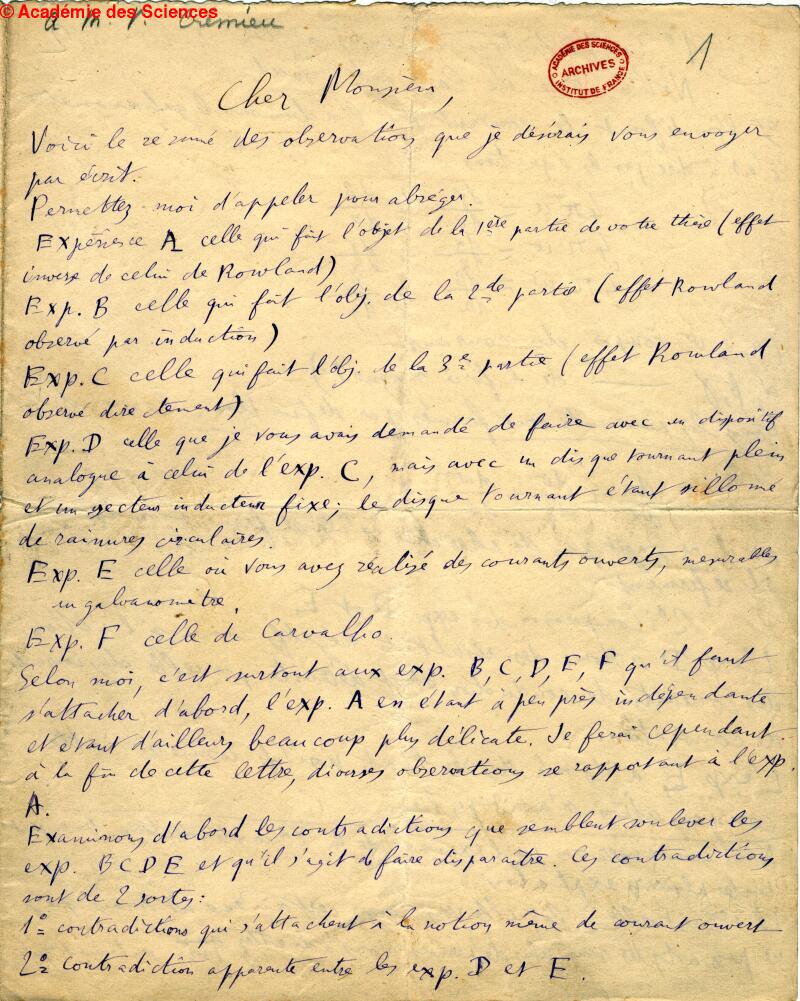 © Académie des Sciences
à M. V. Crémieu
ACADÉMIE DES SCIENCES
ARCHIVES
INSTITUT DE FRANCE
1
Cher Monsieur,
Voici le résumé des observations que je désirais vous envoyer
par écrit.
Permettez-moi d'appeler pour abréger.
Expérience A celle qui fait l'objet de la 1ère partie de votre thèse (effet
inverse de celui de Rowland)
Exp. B celle qui fait l'obj. de la 2de partie (effet Rowland
observé par induction)
Exp. C celle qui fait l'obj. de la 3e partie (effet Rowland
observé directement)
Exp. D celle que je vous avais demandé de faire avec un dispositif
analogue à celui de l'exp. C, mais avec un disque tournant plein
et un secteur inducteur fixe; le disque tournant étant sillonné
de rainures circulaires.
Exp. E celle où vous avez réalisé des courants ouverts, mesurables
au galvanomètre.
Exp. F celle de Carvalho.
Selon moi, c'est surtout aux exp. B, C, D, E, F qu'il faut
s'attacher d'abord, l'exp. A en étant à peu près indépendante
et étant d'ailleurs beaucoup plus délicate. Je ferai cependant
à la fin de cette lettre, diverses observations se rapportant à l'exp.
A.
Examinons d'abord les contradictions que semblent soulever les
exp. B C D E et qu'il s'agit de faire disparaître. Ces contradictions
sont de 2 sortes:
1º contradictions qui s'attachent à la notion même de courant ouvert
2º contradiction apparente entre les exp. D et E.